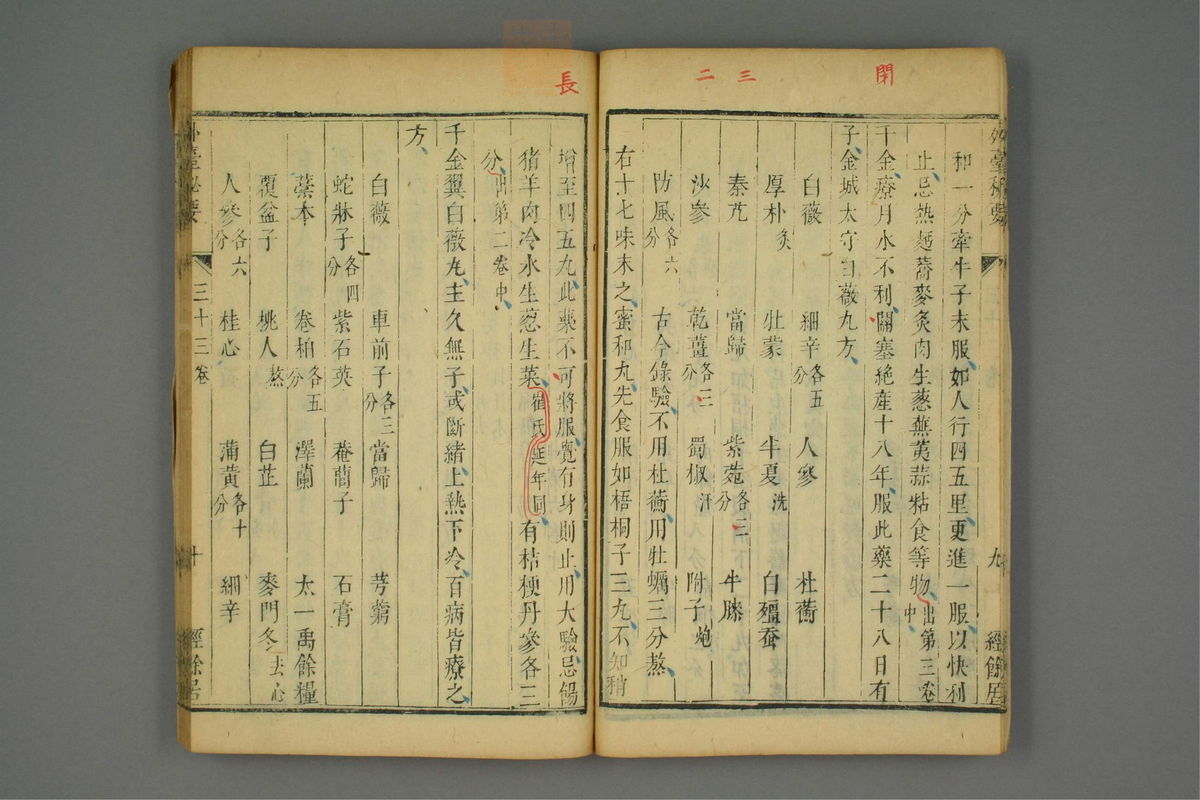 閉
三
二
和一分牽牛子末服如人行四五里更進一服以快利
止忌熱麵蕎麥炙肉生葱蕪荑蒜粘食等物出第三卷中
千金療月水不利關塞絶産十八年服此藥二十八日有
子金城太守白薇丸方
白薇 細辛各五分 人參 杜蘅
厚朴炙 牡蒙 半夏洗 白殭蚕
秦艽 當歸 紫菀各三分 牛膝
沙參 乾薑各二分 蜀椒汗 附子炮
防風各六分 古今錄驗不用杜蘅用牡蠣三分熬
右十七味末之蜜和丸先食服如梧桐子三丸不知稍
九
經餘居
長
增至四五丸此藥不可將服覺有身則止用大驗忌餳
猪羊肉冷水生葱生菜崔氏延年同有桔梗丹參各三
分出第二卷中
千金翼白薇丸主久無子或斷緒上熱下冷百病皆療之
方
白薇 車前子各三分 當歸 芎藭
蛇牀子各四分 紫石英 菴䕡子 石膏
藁本 卷柏各五分 澤蘭 太一禹餘糧
覆盆子 桃人熬 白芷 麥門冬去心
人參各六分 桂心 蒲黄各十分 細辛
三十三卷
十
經餘居